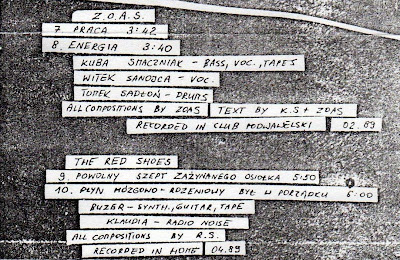 Z.O.A.S.
7. PRACA 3:42
8. ENERGIA 3:40
KUBA SMACZNIAK - BASS, VOC., TAPES
WITEK SANOJCA - VOC.
TOMEK SADŁOŃ - DRUMS
ALL COMPOSITIONS BY ZOAS TEXT BY K.S + ZOAS
RECORDED IN CLUB PODWAWELSKI 02.89
THE RED SHOES
9. POWOLNY SZEPT ZAŻYNANEGO OSIOŁKA 5:50
10. PŁYN MÓZGOWO-RDZENIOWY BYŁ W PORZĄDKU 6:00
BUZER - SYNTH., GUITAR, TAPE
KLAUDIA - RADIO NOISE
ALL COMPOSITIONS BY R.S.
RECORDED IN HOME 04.89